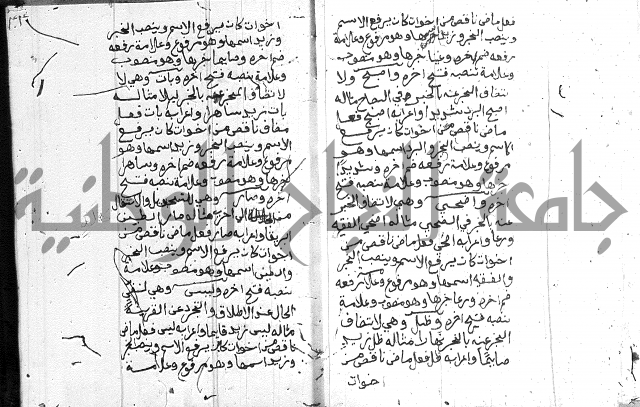 فعل ماض ناقص من اخوات كان يرفع الاسم
وينصب الخبر وزيد وهو مرفوع وعلامة
رفعه ضم اخره خبرها وهو منصوب
وعلامة نصبه فتح اخره واصبح ولا
تتفاق المخبر عنه بالخبر في الصباح مثاله
اصبح البرد شديدا واعرابه اصبح فعل
ماض ناقص من اخوات كان يرفع
الاسم وينصب الخبر والبرد اسمها وهو
مرفوع وعلامة رفعه ضم اخره وشديدا
خبرها وهو منصوب وعلامة نصبه فتح
اخره واضحى وهي لاتفاق المخبر
عنه بالخبر في الضحى مثاله اضحى الفقيه
ورعا واعرابه اضحى فعل ماض ناقص من
اخوات كان يرفع الاسم وينصب الخبر
والفقيه اسمها وهو مرفوع وعلامة رفعه
ضم اخره وورعا خبرها وهو منصوب وعلامة
نصبه فتح اخره وظل وهي لاتفاق
المخبر عنه بالخبر نهارا مثاله ظل زيد
صائما واعرابه ظل فعل ماض ناقص من
اخوات
اخوات كان يرفع الاسم وينصب الخبر
وزيد اسمها وهو مرفوع وعلامة رفعه
ضم اخره وصايما خبرها وهو منصوب
وعلامة نصبه فتح اخره وبات وهي لا
تفاق المخبر عنه بالخبر ليلا مثاله
بات زيد ساهرا واعرابه بات فعل
ماض ناقص من اخوات كان يرفع
الاسم وينصب الخبر وزيد اسمها وهو
مرفوع وعلامة رفعه ضم اخره وساهرا
خبرها وهو منصوب وعلامة نصبه فتح
اخره وصار وهي للتحويل والانتقال
من الى اخر مثاله صار الطين
ابريقا واعرابه صار فعل ماض ناقص من
اخوات كان يرفع الاسم وينصب الخبر
والطين اسمها وهو منصوب وعلامة
نصبه فتح اخره وليس وهي لنفي
الحال عند الاطلاق والتجرد عن القرينة
مثاله ليس زيد قايما واعرابه ليس فعل ماض
ناقص من اخوات كان يرفع الاسم وينصب الخبر
وزيد اسمها وهو مرفوع وعلامة
جامعة النجاح الوطنية